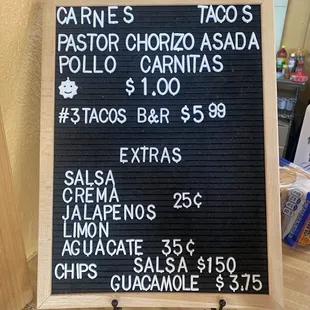 CARNES TACOS
PASTOR CHORIZO ASADA
POLLO CARNITAS
$1.00
#3 TACOS B&R $5.99
EXTRAS
SALSA
CREMA 25¢
JALAPENOS
LIMON
AGUACATE 35¢
CHIPS SALSA $150
GUACAMOLE $3.75